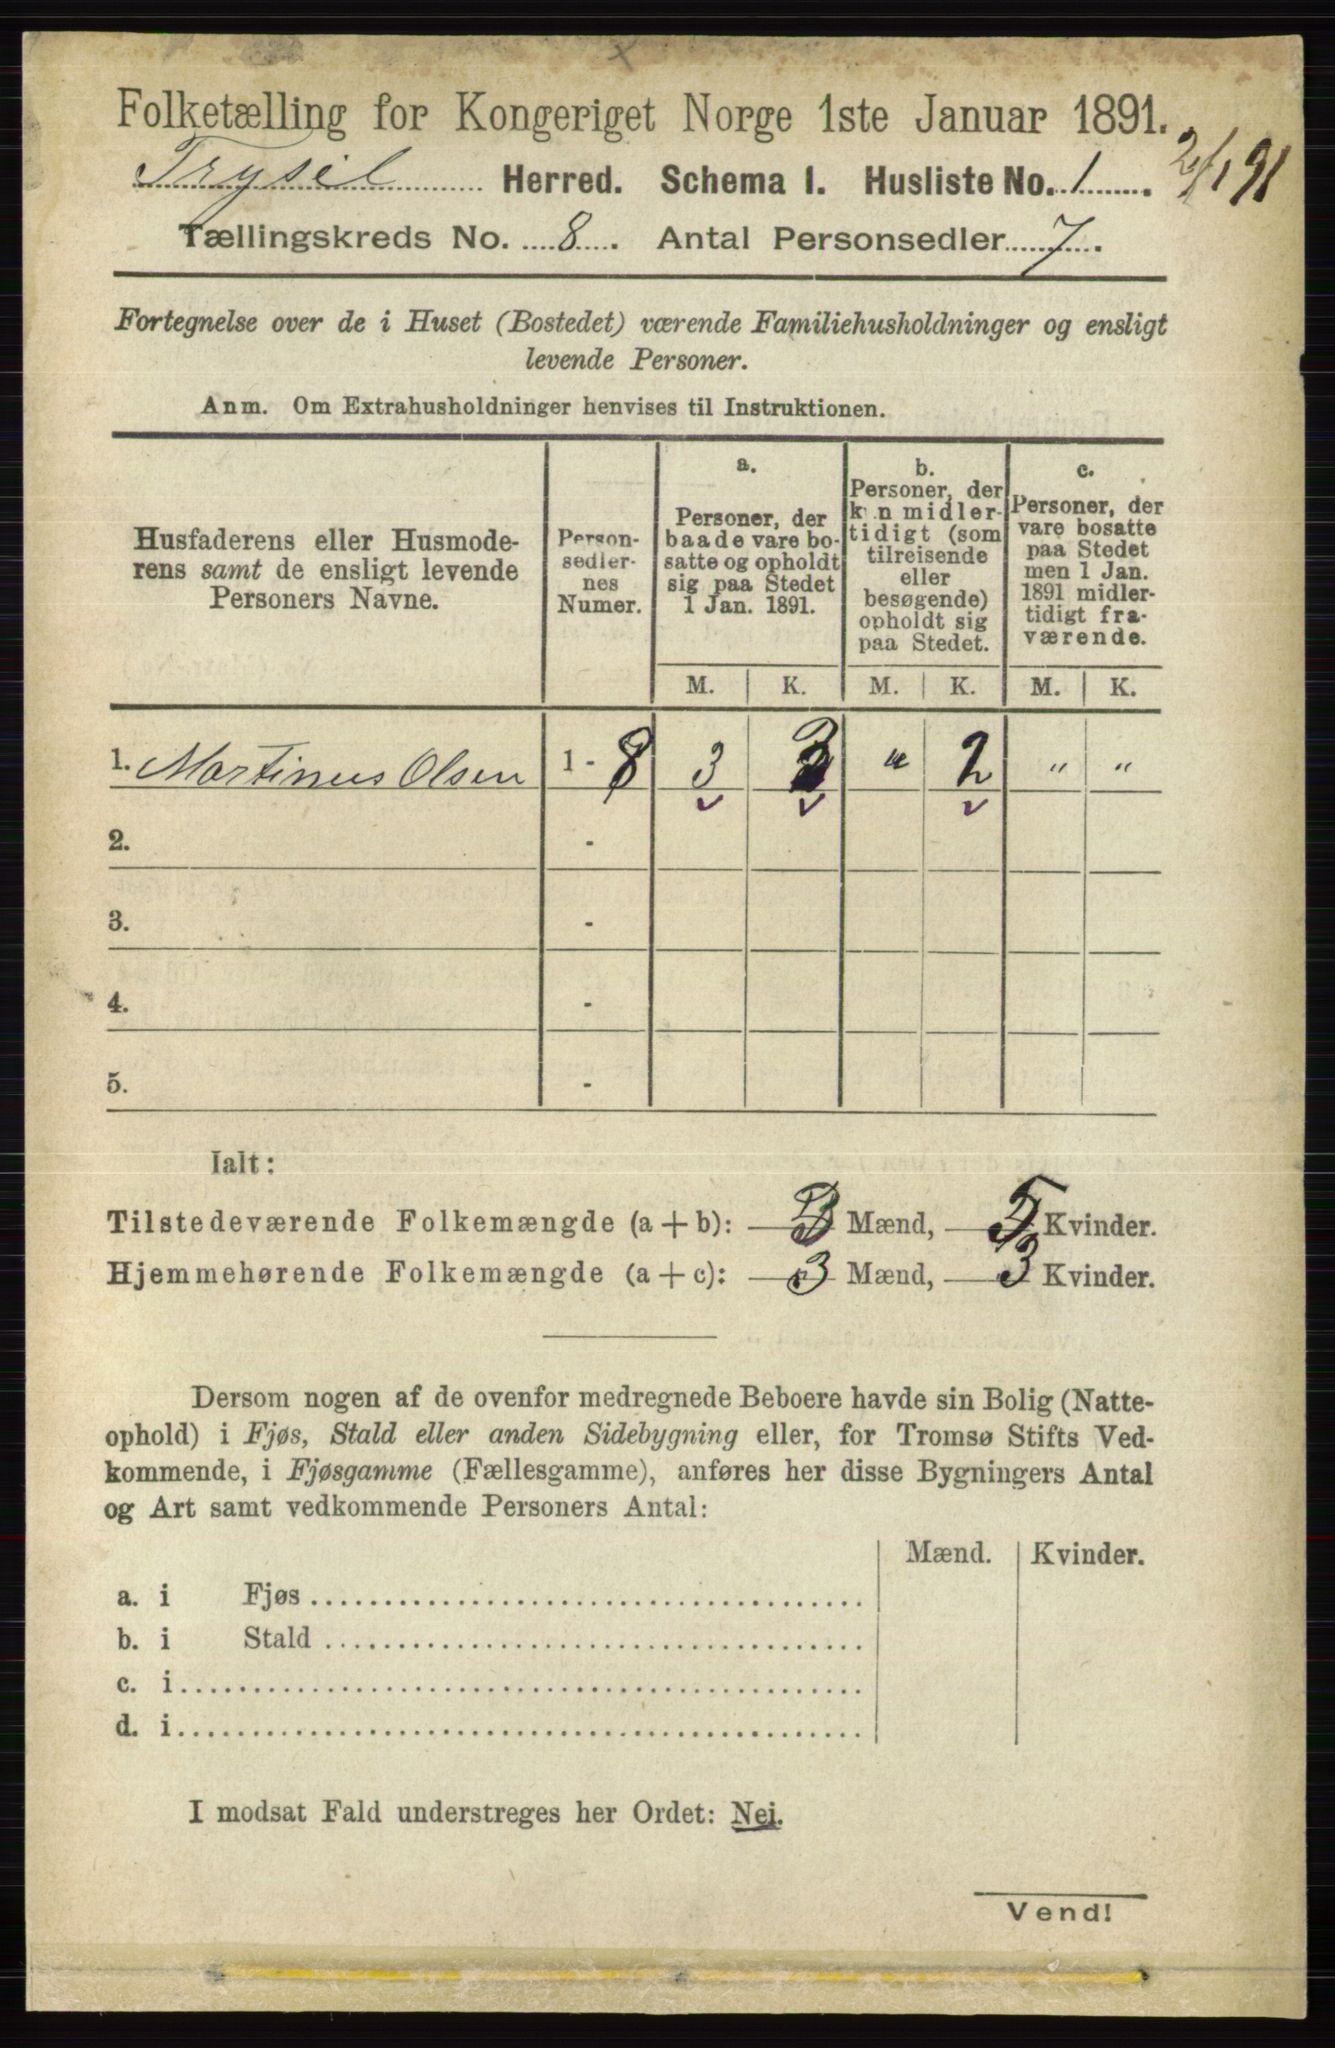 Folketælling for Kongeriget Norge 1ste Januar 1891.
Trysil Herred. Schema I. Husliste No. 1. 2/1 91
Tællingskreds No. 8. Antal Personsedler 7.
Fortegnelse over de i Huset (Bostedet) værende Familiehusholdninger og ensligt
levende Personer.
Anm. Om Extrahusholdninger henvises til Instruktionen.
Husfaderens eller Husmode-
rens samt de ensligt levende
Personers Navne.
Person-
sedler-
nes
Numer.
a.
Personer, der
baade vare bo-
satte og opholdt
sig paa Stedet
1 Jan. 1891.
b.
Personer, der
kun midler-
tidigt (som
tilreisende
eller
besøgende)
opholdt sig
paa Stedet.
c.
Personer, der
vare bosatte
paa Stedet
men 1 Jan.
1891 midler-
tidigt fra-
værende.
M. K. M. K. M. K.
1. Martinus Olsen 1 - 8 3 3 " 2 " "
2. -
3. -
4. -
5. -
Ialt:
Tilstedeværende Folkemængde (a + b): 3 Mænd, 5 Kvinder.
Hjemmehørende Folkemængde (a + c): 3 Mænd, 3 Kvinder.
Dersom nogen af de ovenfor medregnede Beboere havde sin Bolig (Natte-
ophold) i Fjøs, Stald eller anden Sidebygning eller, for Tromsø Stifts Ved-
kommende, i Fjøsgamme (Fællesgamme), anføres her disse Bygningers Antal
og Art samt vedkommende Personers Antal:
Mænd. Kvinder.
a. i Fjøs
b. i Stald
c. i
d. i
I modsat Fald understreges her Ordet: Nei.
Vend!